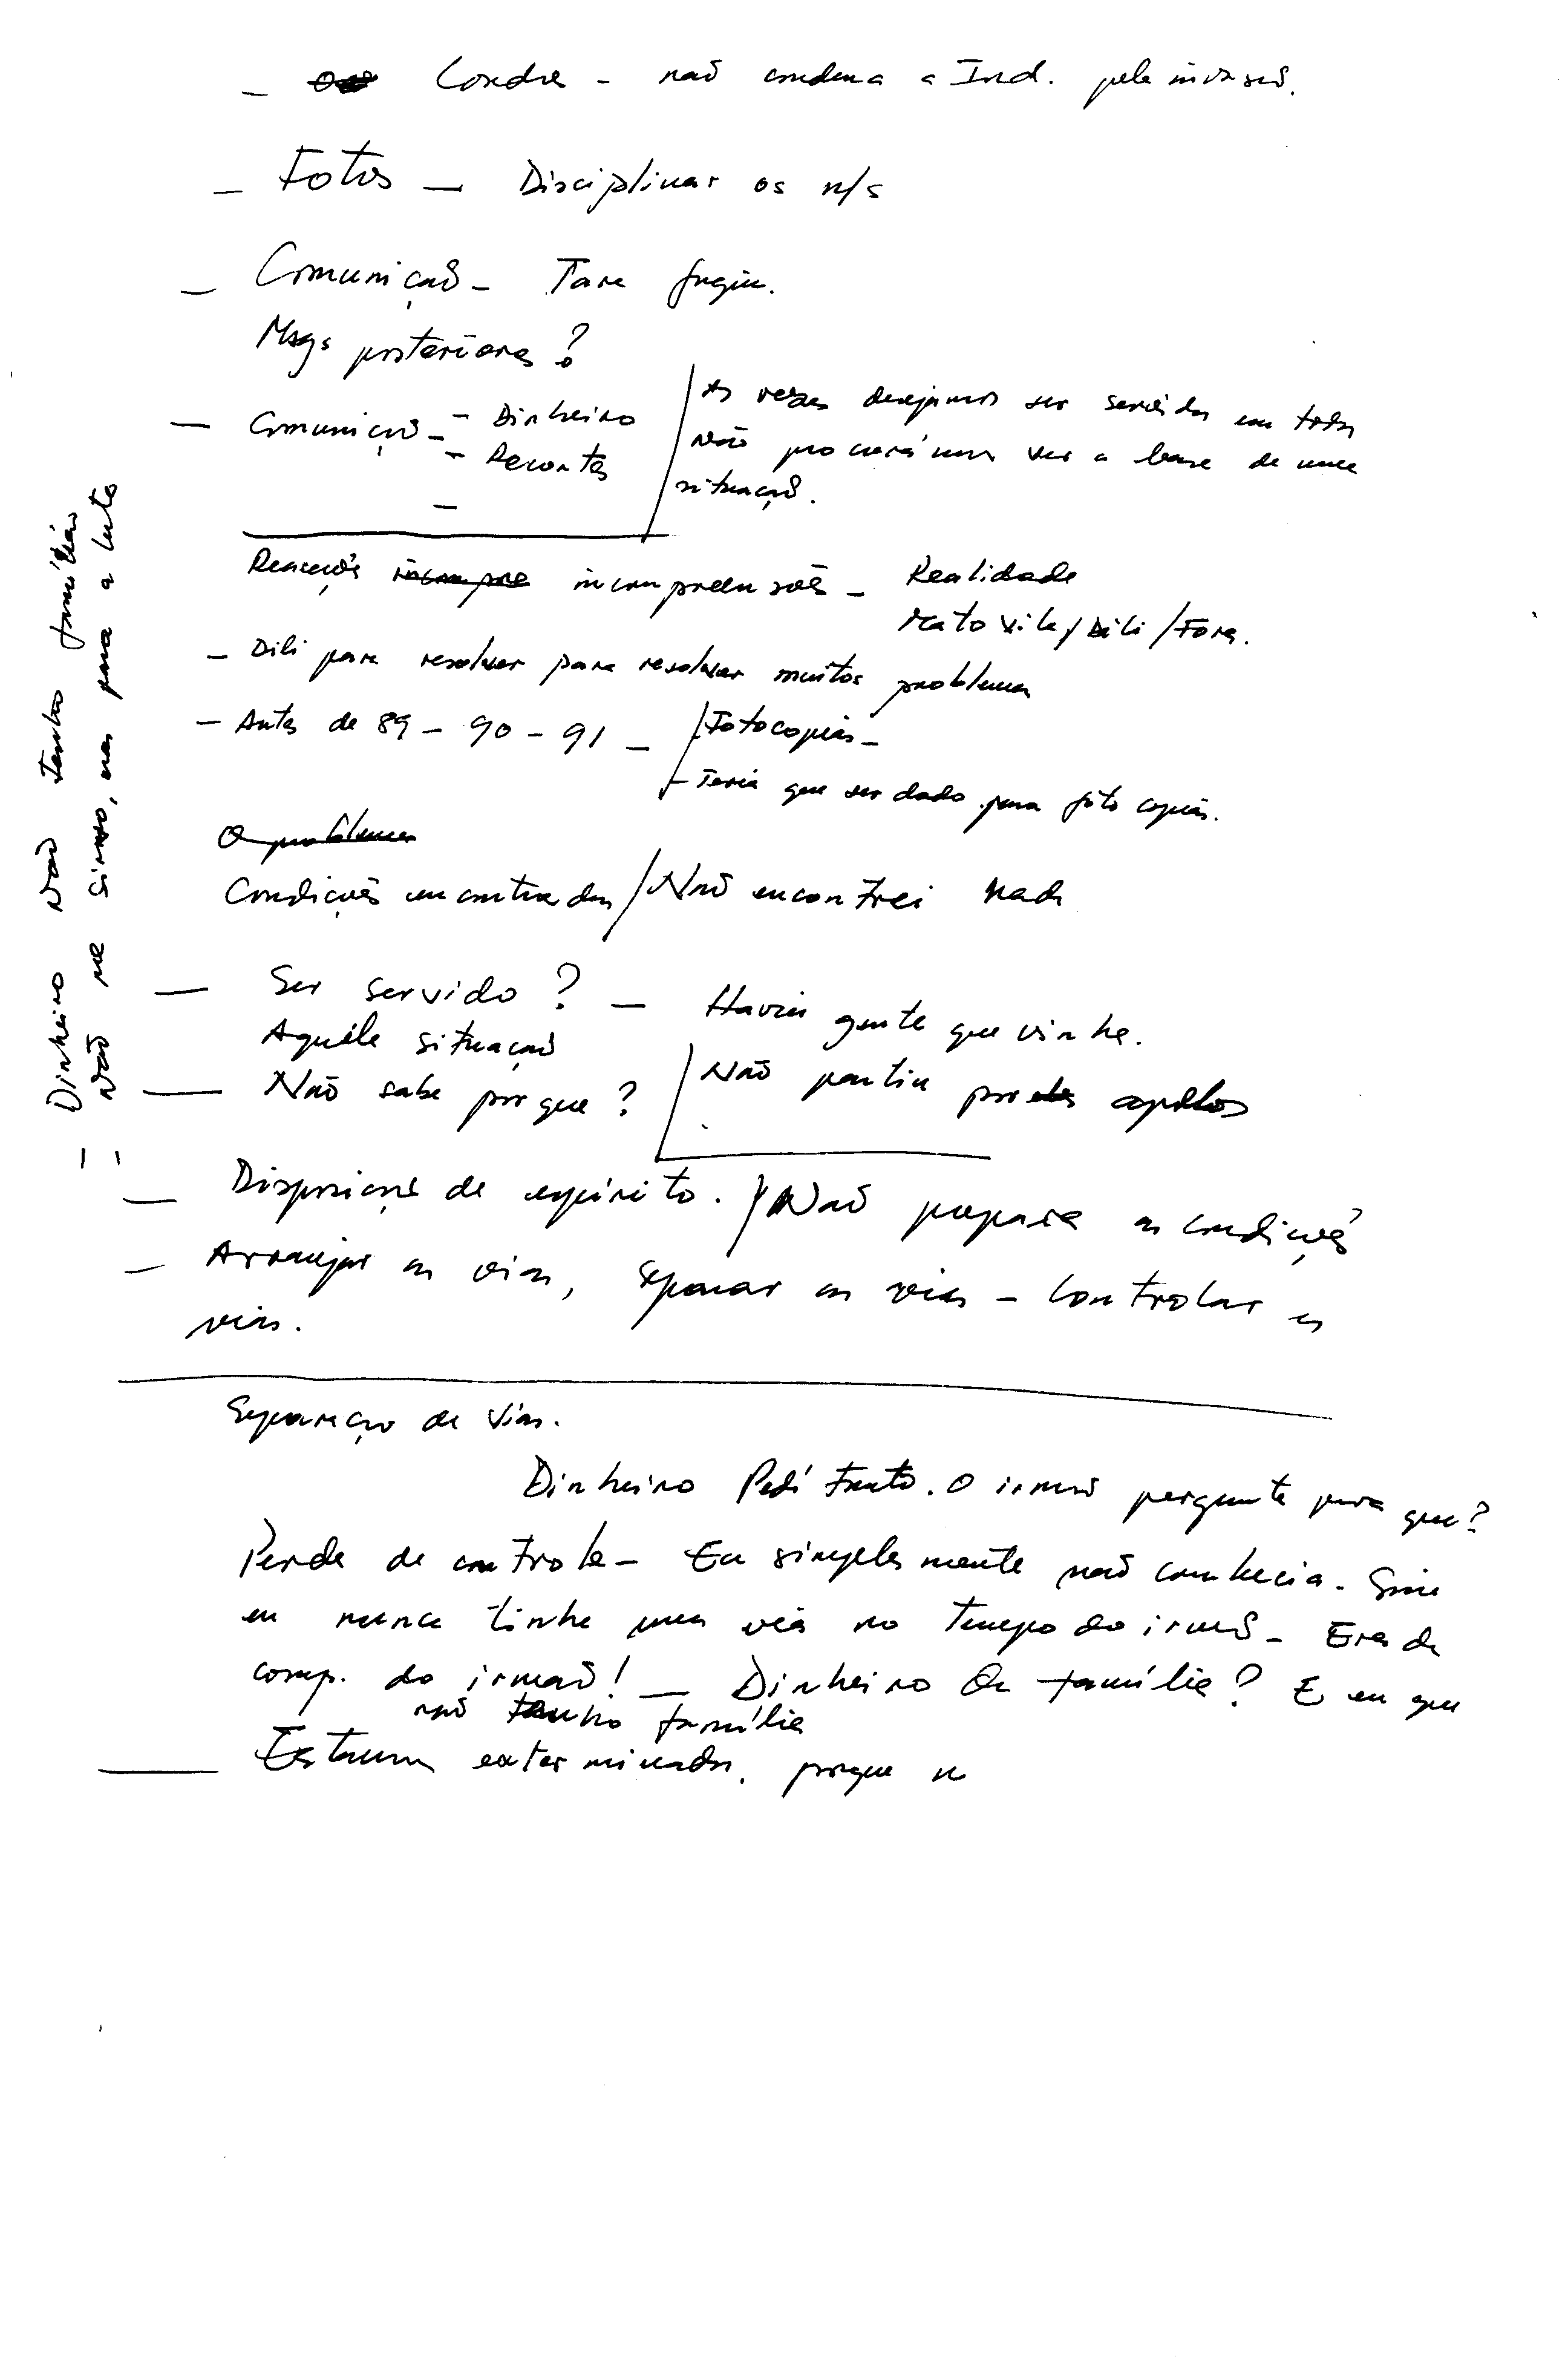 - Londres - não condena a Ind. pela invasão.
- Fotos - Disciplinar os n/s
- Comunicação - Tara fugiu.
Msgs posteriores?
- Comunicação - - Dinheiro
- Recortes
-
As vezes desejamos ser servidos em todos
Não procurámos ver a base de uma
situação.
Reacções incompre incompreensões - Realidade
Mato Vila/Dili/Fora.
- Dili para resolver para resolver muitos problemas
- Antes de 89 - 90 - 91 - / Fotocopias -
- Teria que ser dado para foto copias.
O problema
Condições encontradas / Não encontrei nada
- Ser servido? - Havia gente que vinha.
Aquéle situação
- Não sabe por que? / Não partiu por apelos
- Disposição de espírito. / Não prepara as condições
- Arranjar as vias, separar as vias - Controlar as
vias.
Separação de Vias.
Dinheiro Pedi tanto. O irmão pergunta para que?
Perda de controle - Eu simplesmente não conhecia.
eu nunca tinha uma via no tempo do irmão - Eras da
comp. do irmão! - Dinheiro familia? E eu que
não tenho família
Estavam exterminados, porque n
- Dinheiro Não tenho famílias
- Não me sirvo, mas para a luta